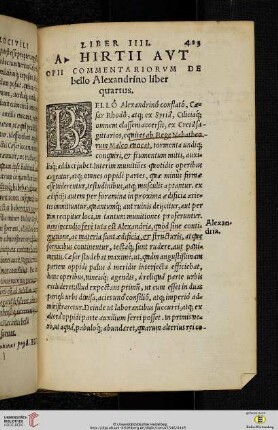 LIBER IIII. 423
A. HIRTII AVT
OPII COMMENTARIORVM DE
bello Alexandrino liber
quartus.
BELLO Alexandrino conflato, Cæ
sar Rhodo, atq; ex Syria, Ciliciaq;
omnem classem accersit, ex Creta sa-
gittarios, equites ab Rege Nabathæo
rum Malco euocat, tormenta undiq;
conquiri, et frumentum mitti, auxi-
liaq; adduci iubet. Interim munitiones quotidie operibus
augentur, atq; omnes oppidi partes, quæ minus firmæ
esse uidentur, testudinibus, atq; musculis aptantur. ex
ædificiis autem per foramina in proxima ædificia arie-
tes immittuntur, quantumq; aut ruinis deijcitur, aut per
uim recipitur, in tantum munitiones proferuntur.
incendio ferè tuta est Alexandria, quòd sine conti
gnatione, ac materia sunt ædificia, et structuris, atq;
fornicibus continentur, tectaq; sunt rudere, aut pauimentis.
Cæsar studebat maximè, ut, quam angustissimam
partem oppidi palus à meridie interiecta efficiebat,
hanc operibus, uineisq; agendis, à reliqua parte urbis
excluderet. illud expectans primùm, ut cum esset in duas partes
urbs diuisa, acies uno consilio, atq; imperio ad
ministraretur. Deinde ut laborantibus succurri, atq; ex
altera oppidi parte auxilium ferri posset. In primis uerò,
ut aqua, pabuloq; abundaret, quarum alterius rei co-
Alexan-
dria.
© Universitätsbibliothek Heidelberg